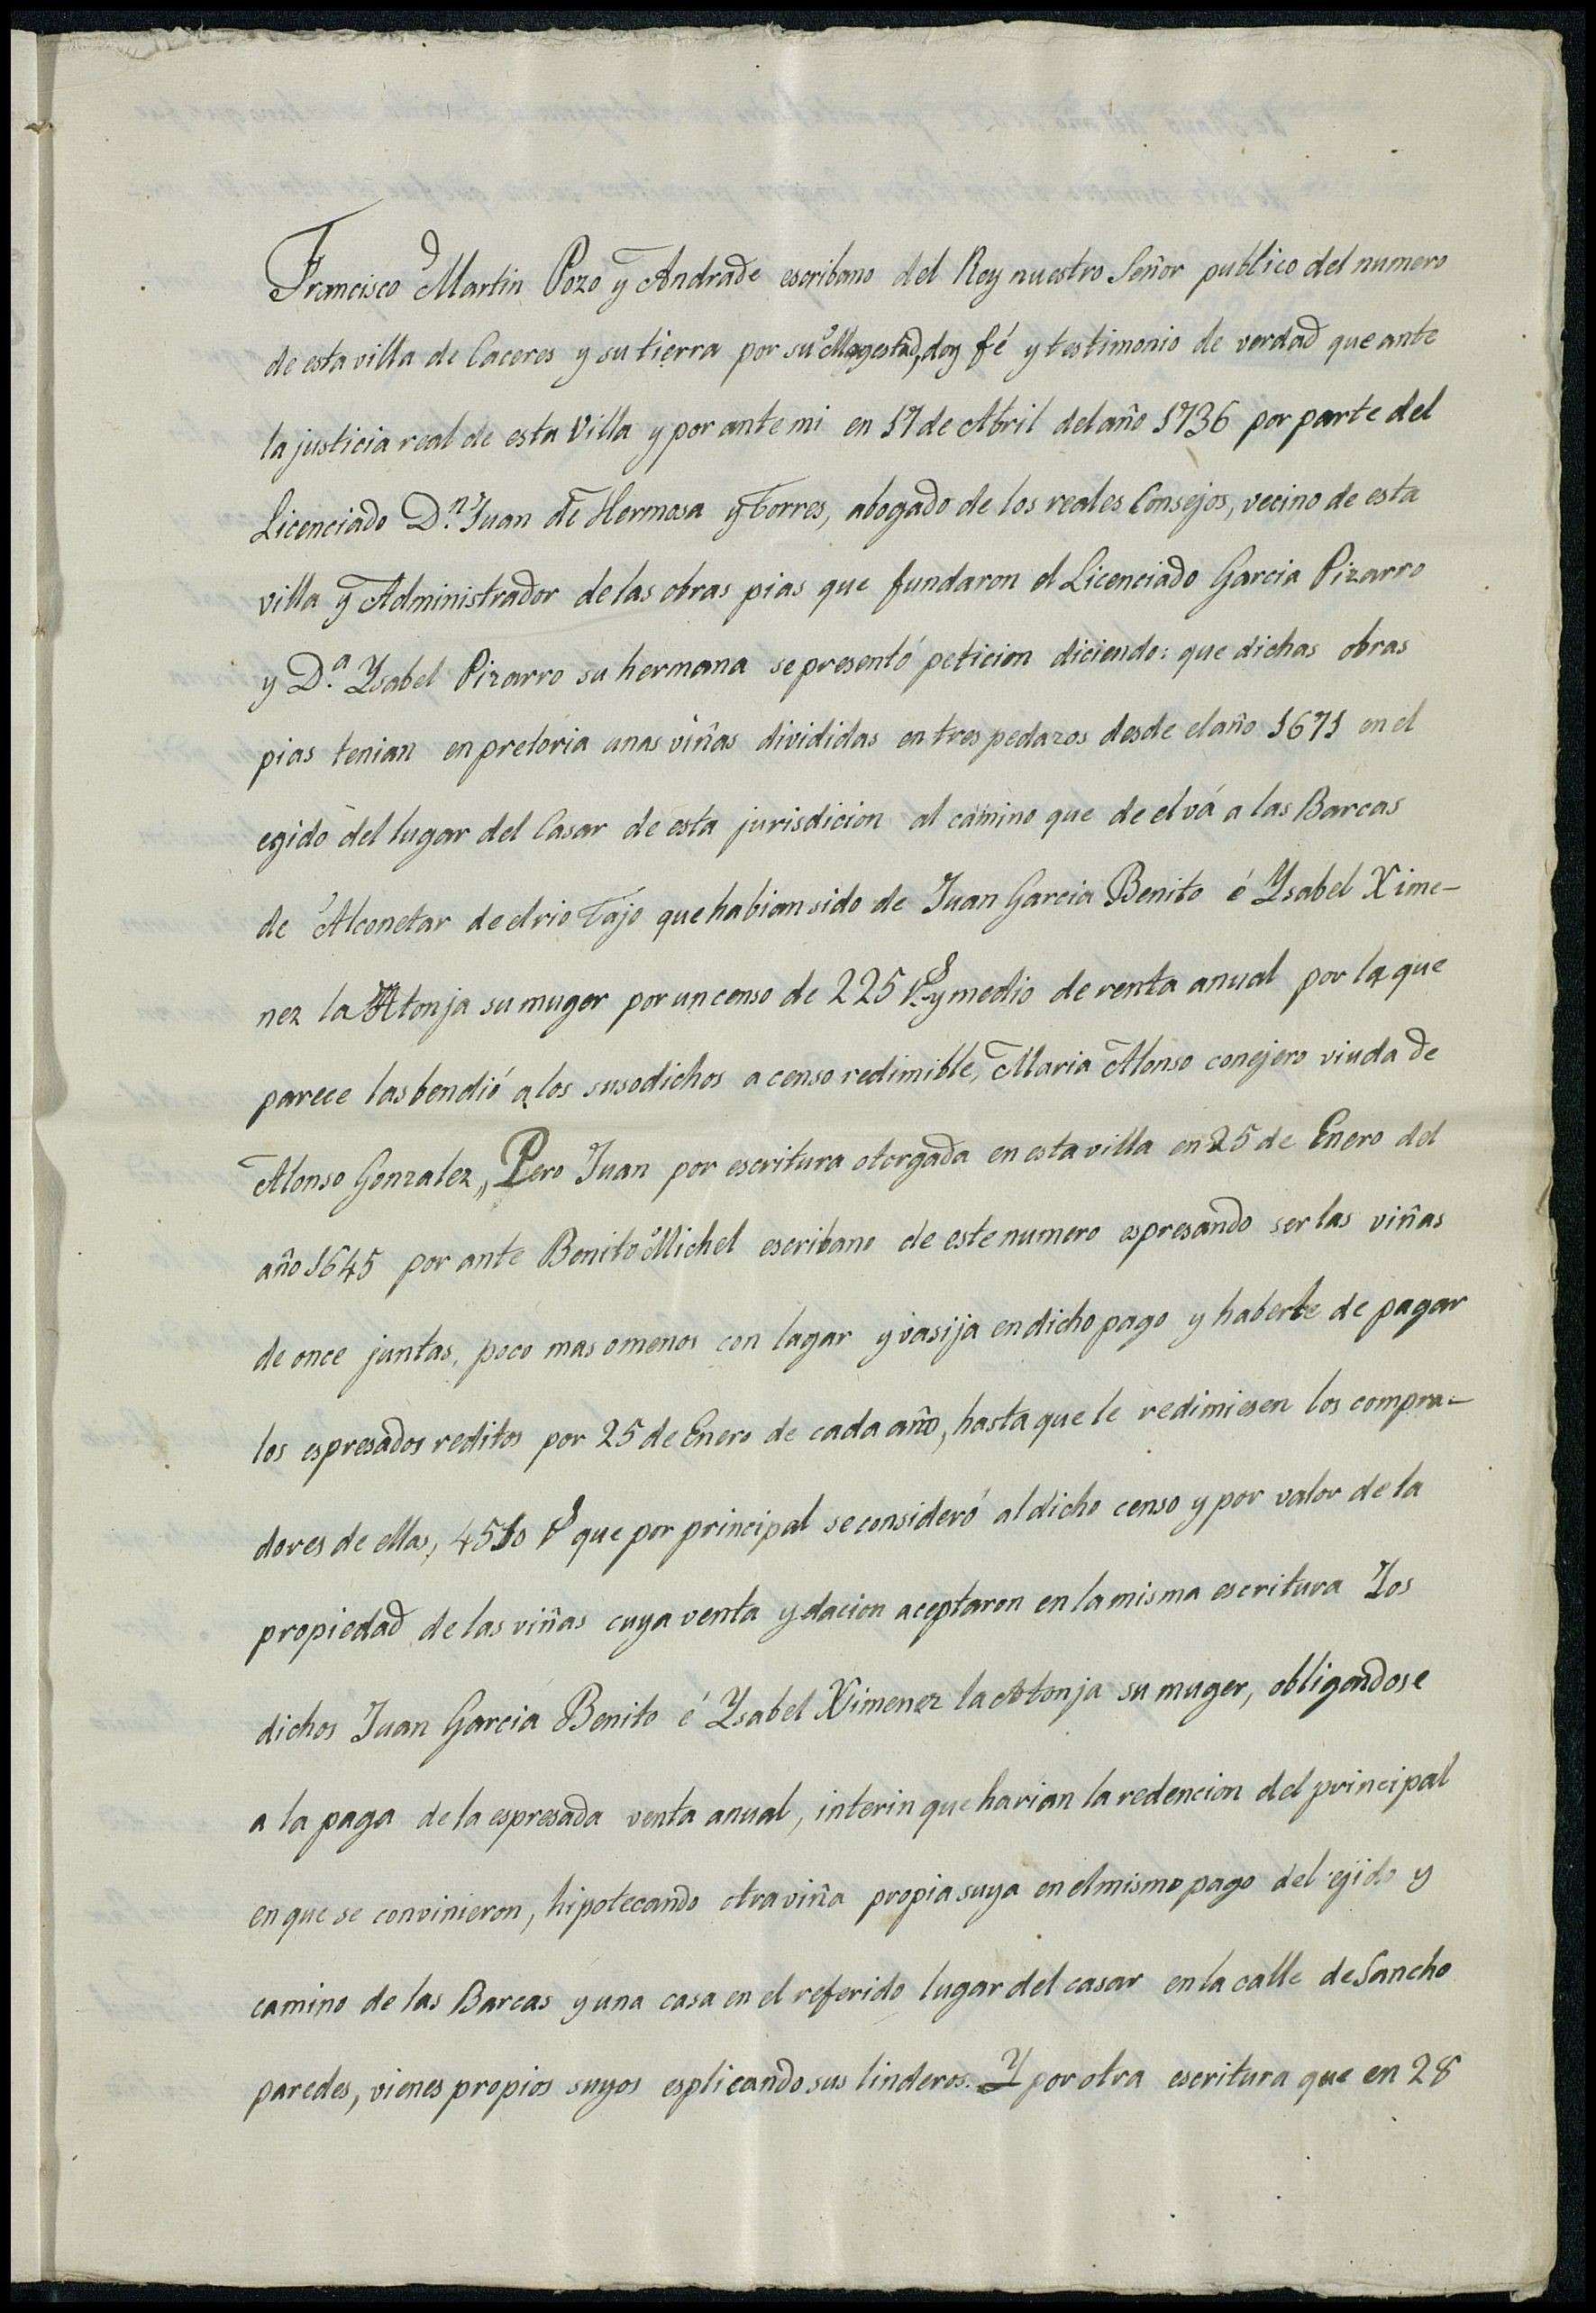 Francisco Martin Pozo y Andrade escribano del Rey nuestro Señor publico del numero
de esta villa de Caceres y su tierra por su Magestad, doy fé y testimonio de verdad que ante
la justicia real de esta Villa y por ante mi en 17 de Abril del año 1736 por parte del
Licenciado D.ⁿ Juan de Hermosa y Torres, abogado de los reales Consejos, vecino de esta
villa y Administrador de las obras pias que fundaron el Licenciado Garcia Pizarro
y D.ª Ysabel Pizarro su hermana se presentó peticion diciendo: que dichas obras
pias tenian en pretoria unas viñas divididas en tres pedazos desde el año 1671 en el
egido del lugar del Casar de esta jurisdicion al camino que de el vá a las Barcas
de Alconetar de el rio Tajo que habian sido de Juan Garcia Benito é Ysabel Xime-
nez la Atonja su muger por un censo de 225 rs y medio de renta anual por la que
parece las bendió a los susodichos a censo redimible, Maria Alonso conejero viuda de
Alonso Gonzalez,, Pero Juan por escritura otorgada en esta villa en 25 de Enero del
año 1645 por ante Benito Michel escribano de este numero espresando ser las viñas
de once juntas, poco mas o menos con lagar y vasija en dicho pago y haberle de pagar
los espresados reditos por 25 de Enero de cada año, hasta que le redimiesen los compra-
dores de ellas, 4510 rs que por principal se consideró al dicho censo y por valor de la
propiedad de las viñas cuya venta y dacion aceptaron en la misma escritura Los
dichos Juan Garcia Benito é Ysabel Ximenez la Atonja su muger, obligandose
a la paga de la espresada venta anual, interin que harian la redencion del principal
en que se convinieron, hipotecando otra viña propia suya en el mismo pago del egido y
camino de las Barcas y una casa en el referido lugar del casar en la calle de Sancho
paredes, vienes propios suyos esplicando sus linderos. Y por otra escritura que en 28